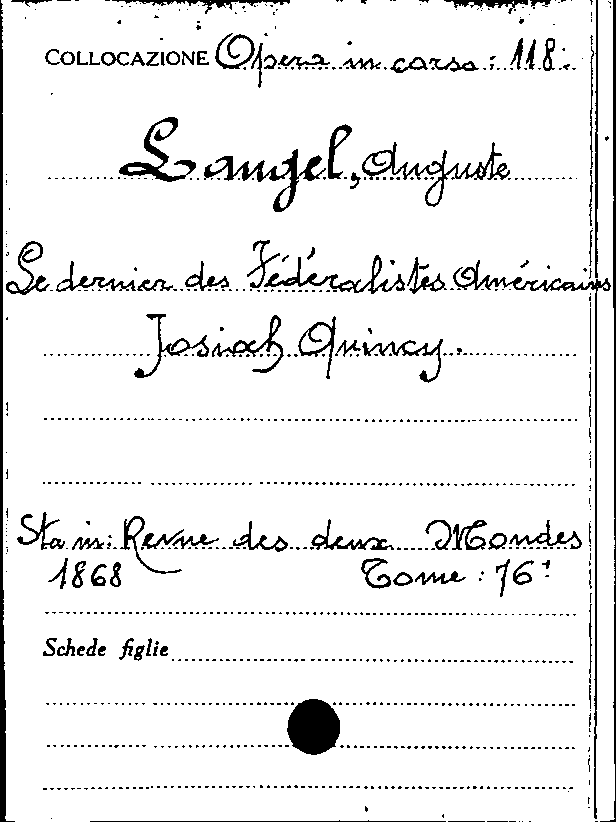 COLLOCAZIONE Opera in corso: 118.
Laugel, Auguste
Le dernier des Fédéralistes Américains
Josiah Quincy.
Sta in: Revue des deux Mondes
1868 Tome: 76°
Schede figlie